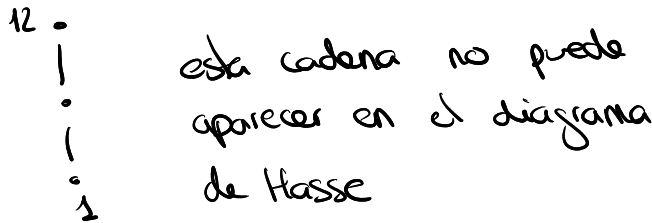 12
esta cadena no puede
aparecer en el diagrama
de Hasse
1